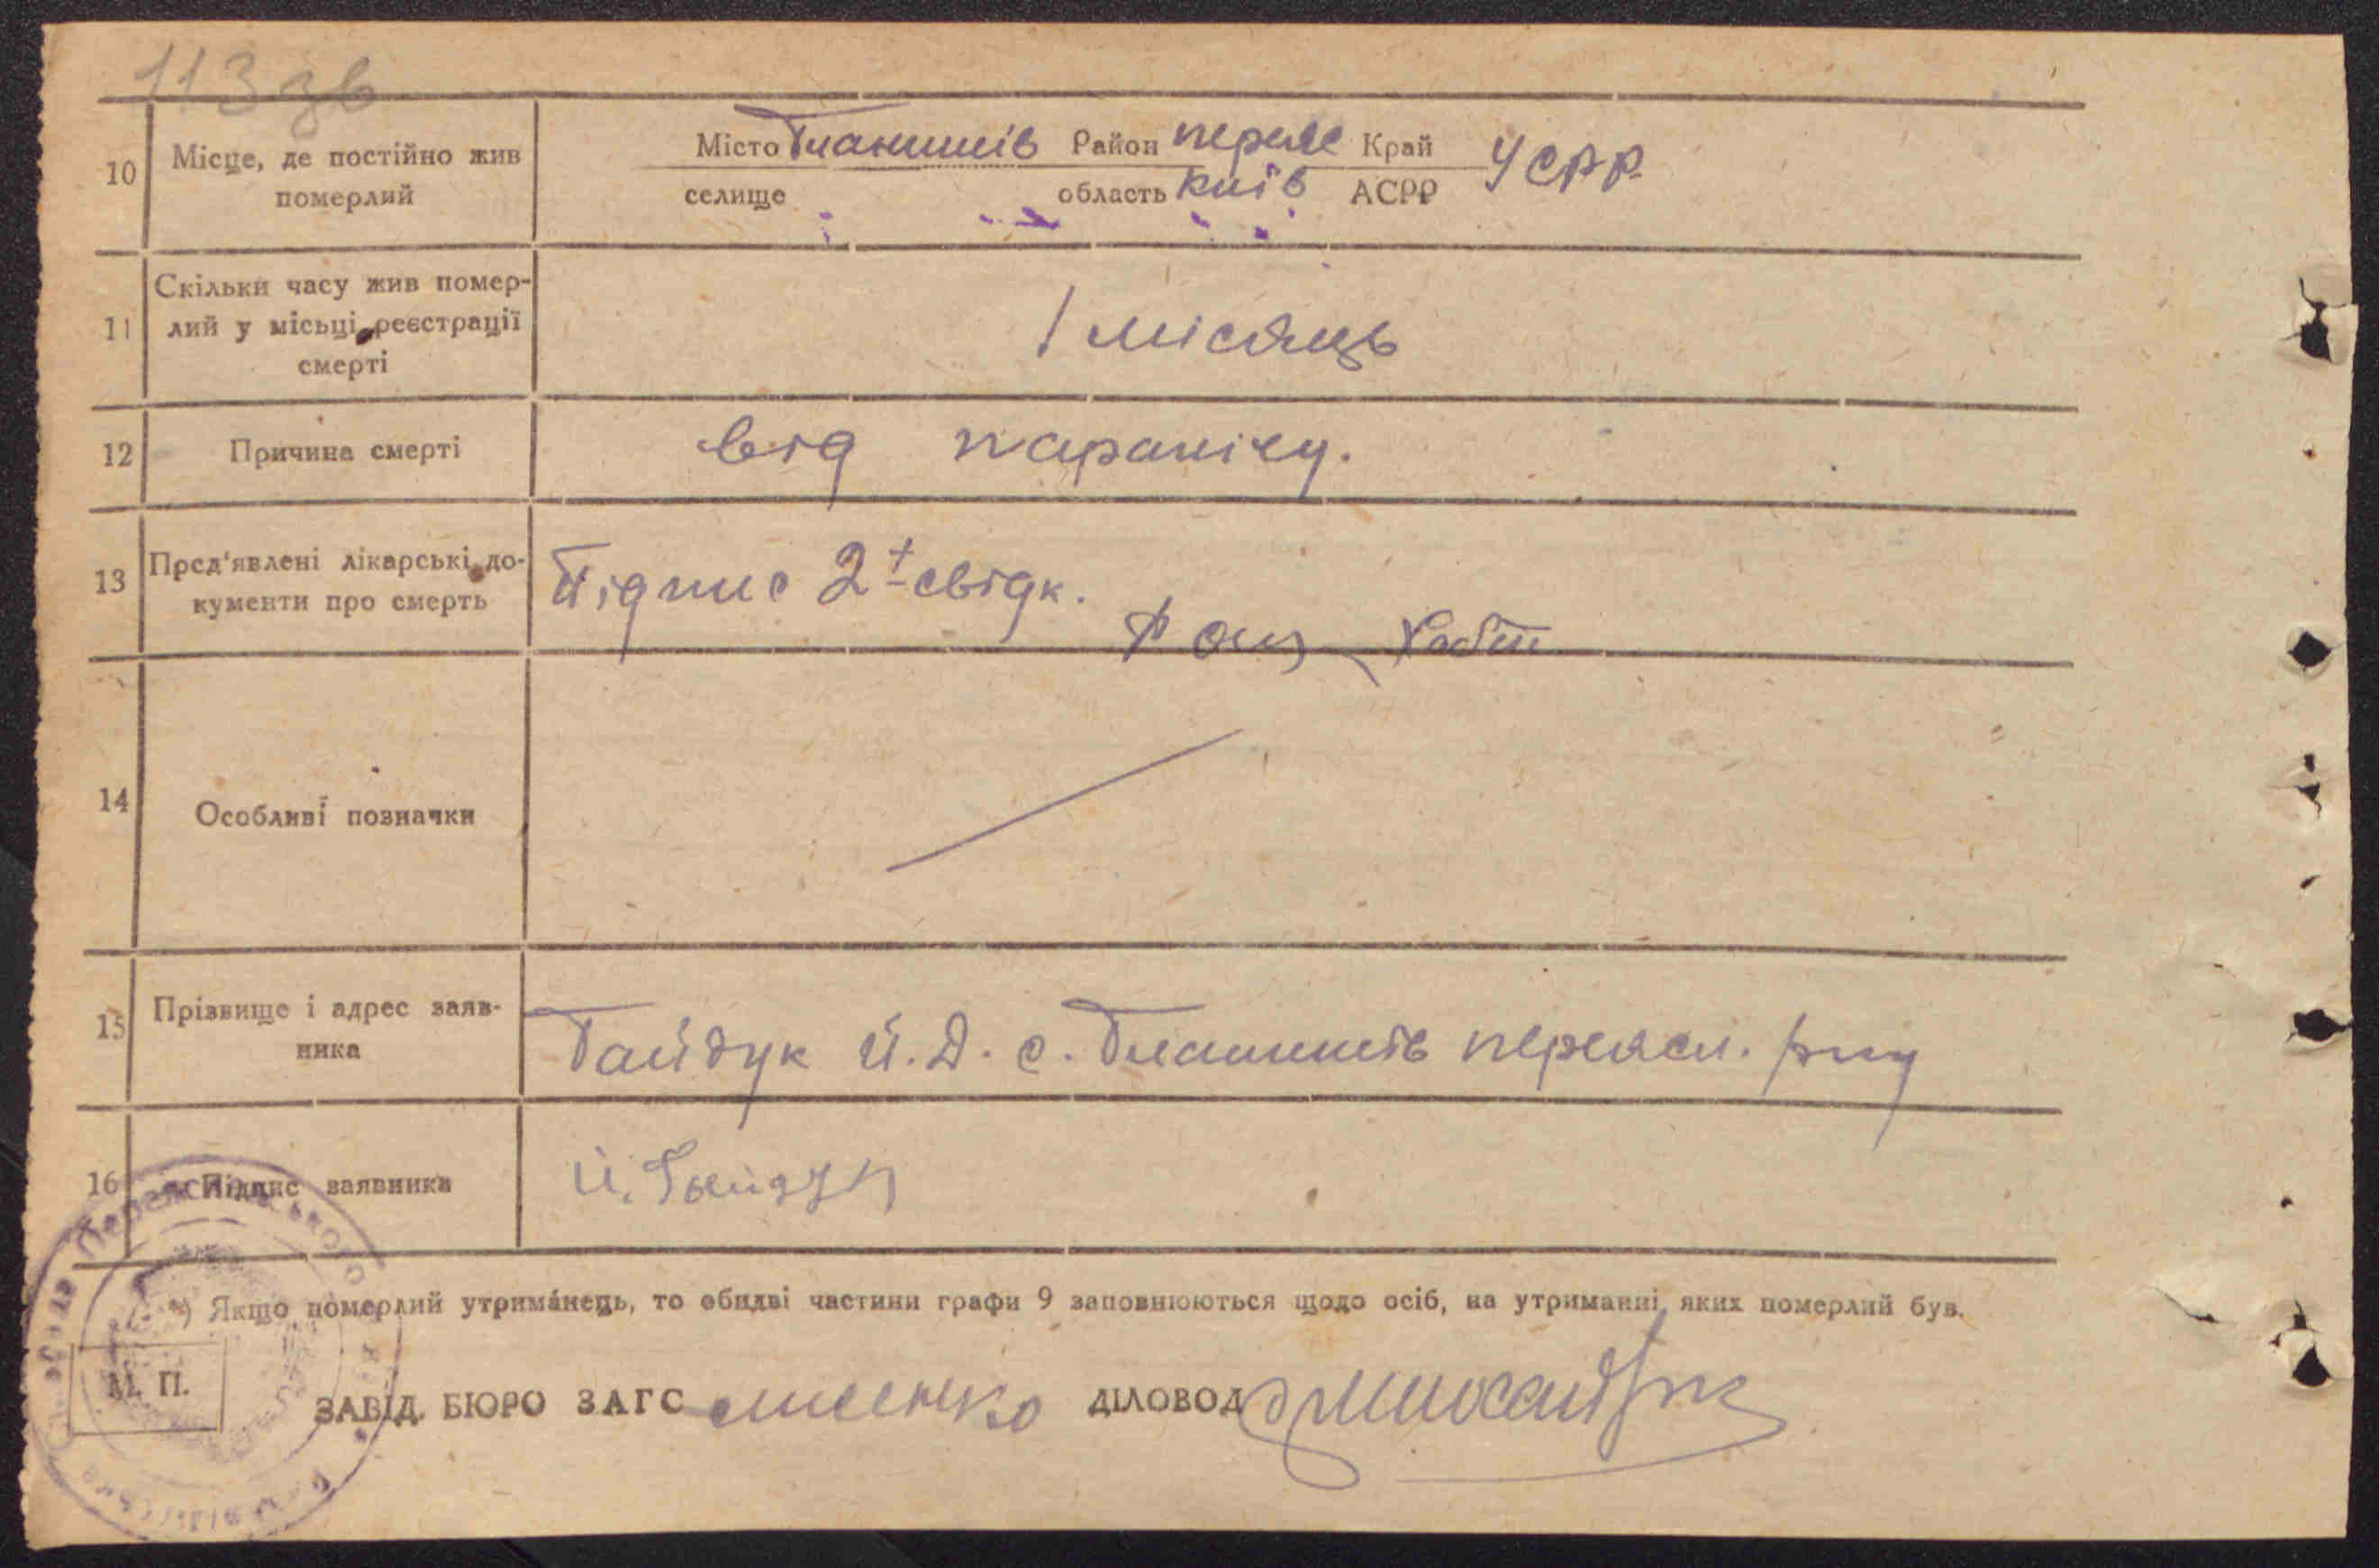 113 зв
10 Місце, де постійно жив померлий
Місто Гланишів Район переяс Край УСРР
селище область Київ АСРР
11 Скільки часу жив помер-
лий у місьці реєстрації
смерті
1 місяць
12 Причина смерті від параличу.
13 Пред'явлені лікарські до-
кументи про смерть
Підпис 2х свідк.
14 Особливі позначки
15 Прізвище і адрес заяв-
ника
Гайдук Й. Д. с. Гланишів переясл. р-ну
16 Підпис заявника Й. Гайдук
*) Якщо померлий утриманець, то обидві частини графи 9 заповнюються щодо осіб, на утриманні яких померлий був.
М. П.
ЗАВІД. БЮРО ЗАГС ДІЛОВОД